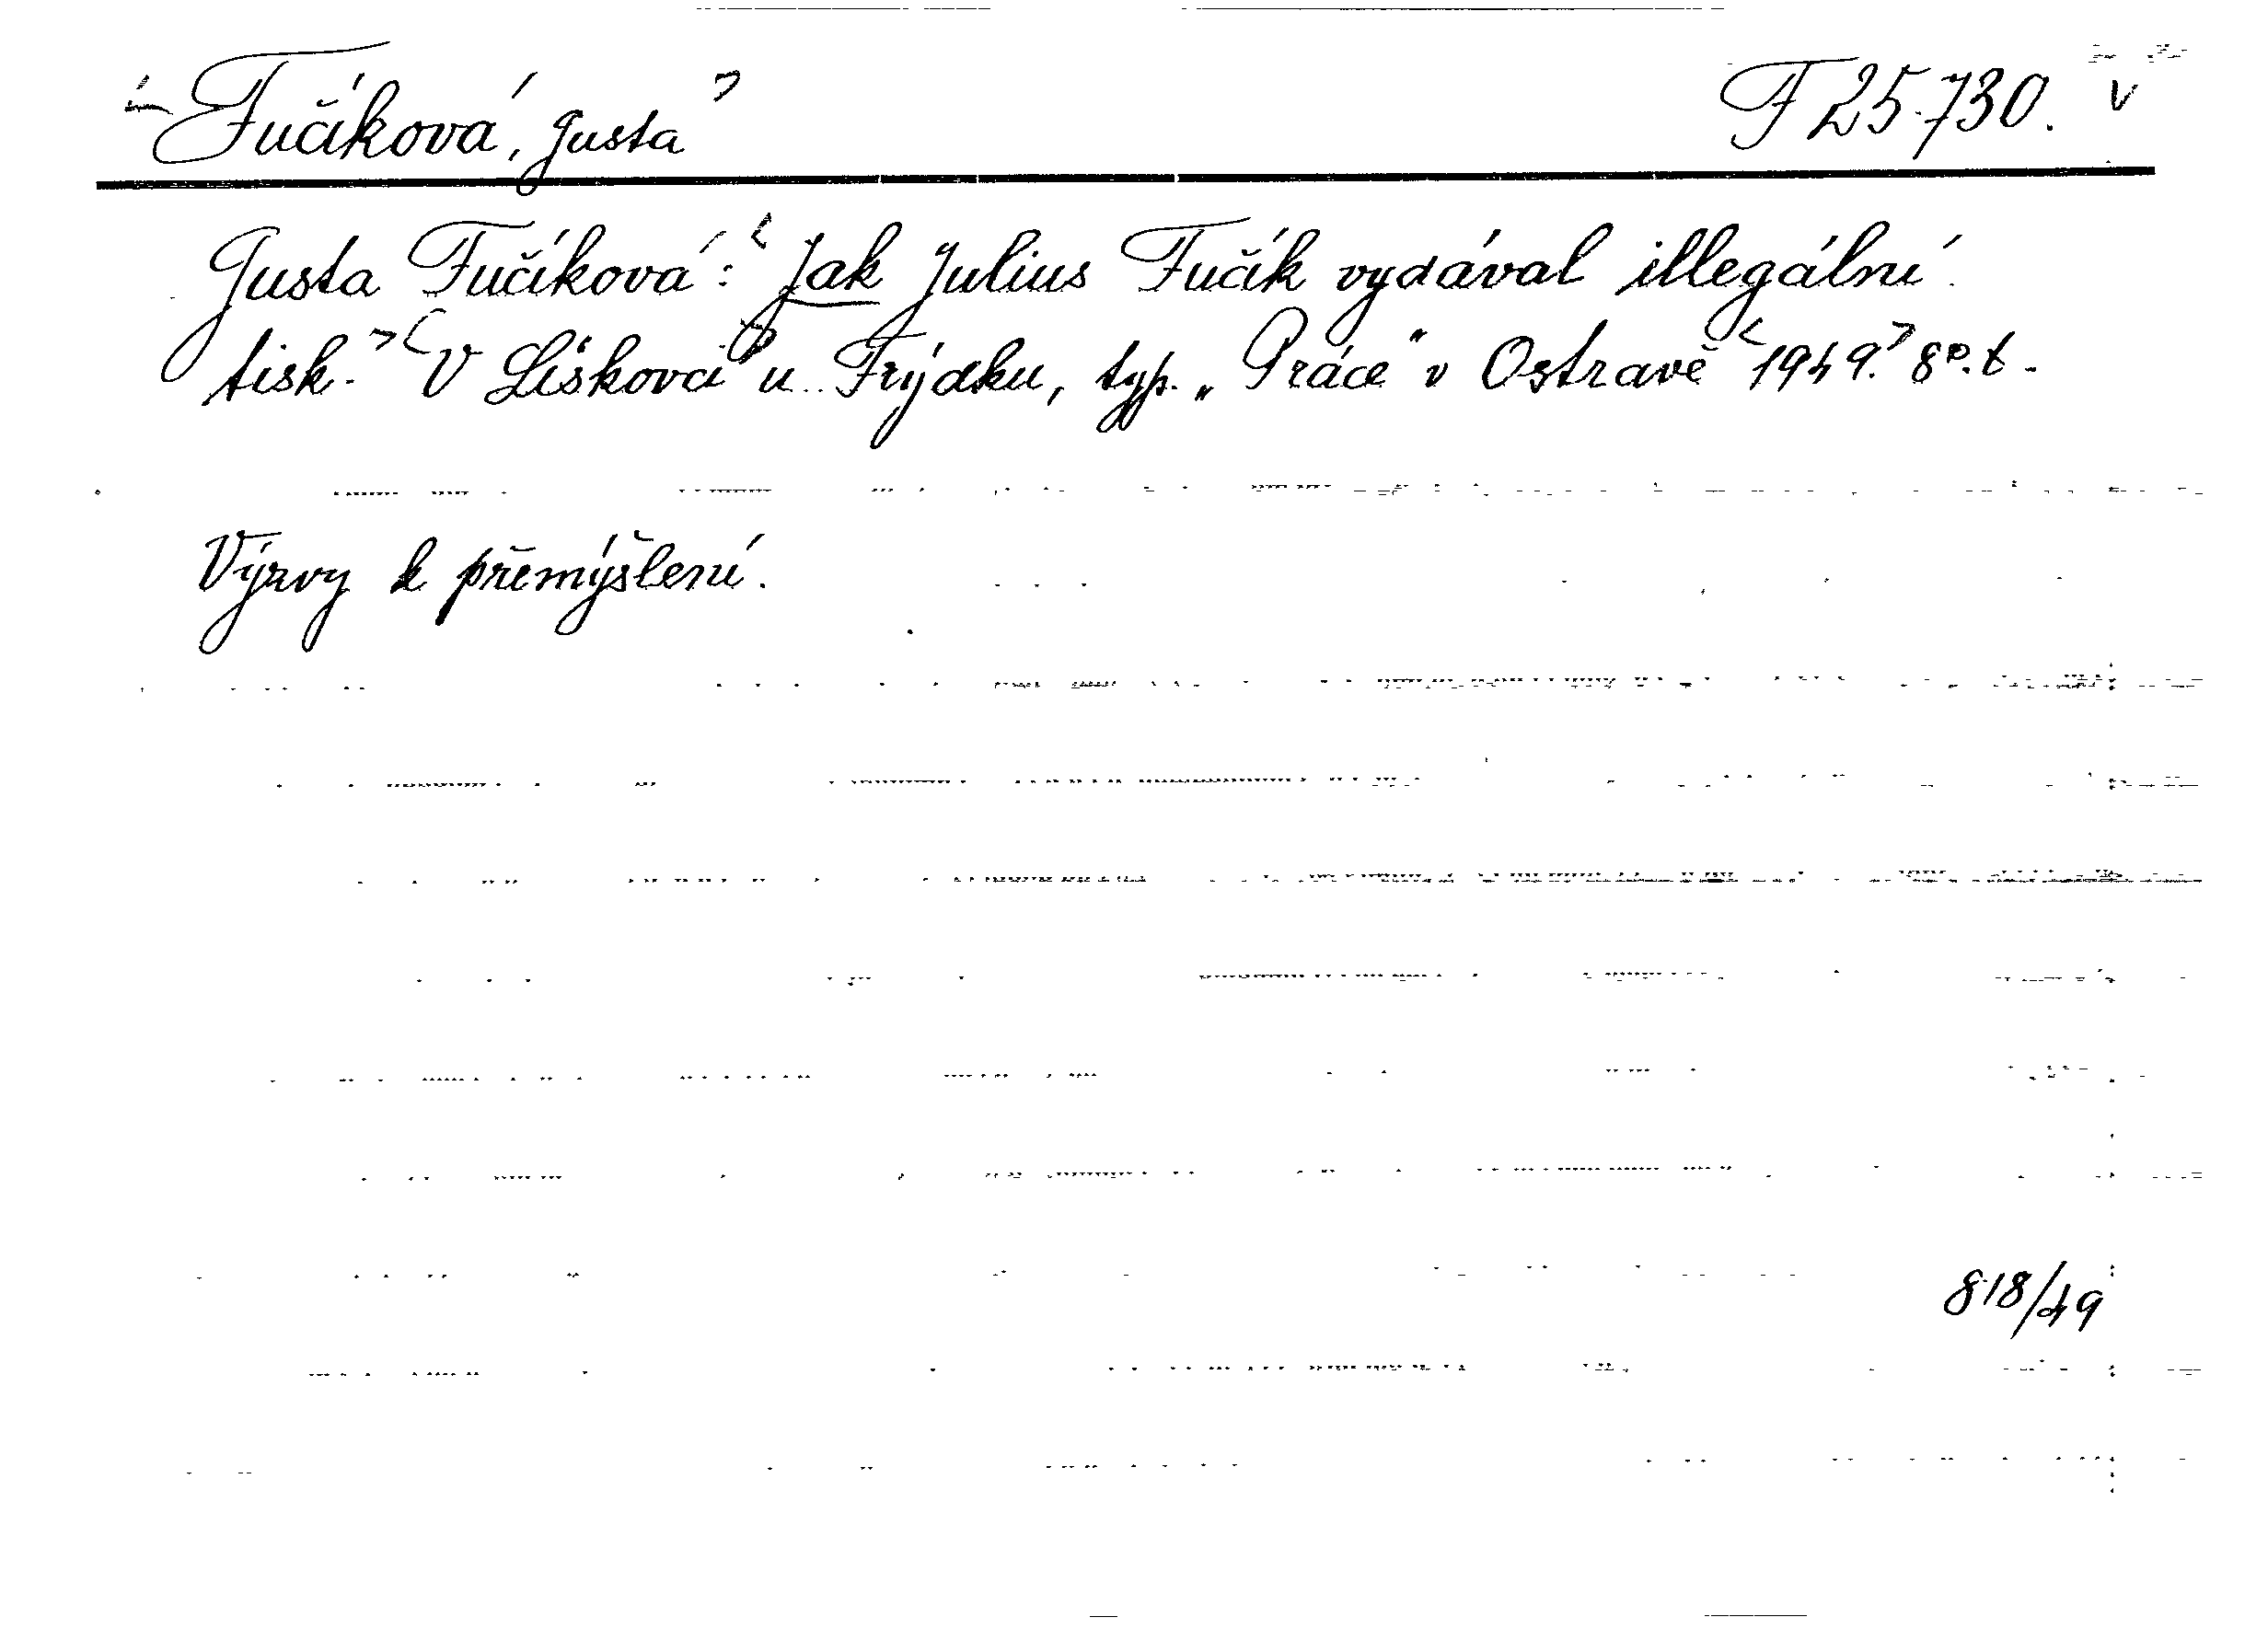 <Fučíková, Gusta> F 25.730. v
Gusta Fučíková: <Jak Julius Fučík vydával illegální
tisk.> <V Lískovci> u Frýdku, typ. „Práce" v Ostravě <1949.> 8°. t.
Výzvy k přemýšlení.
818/49